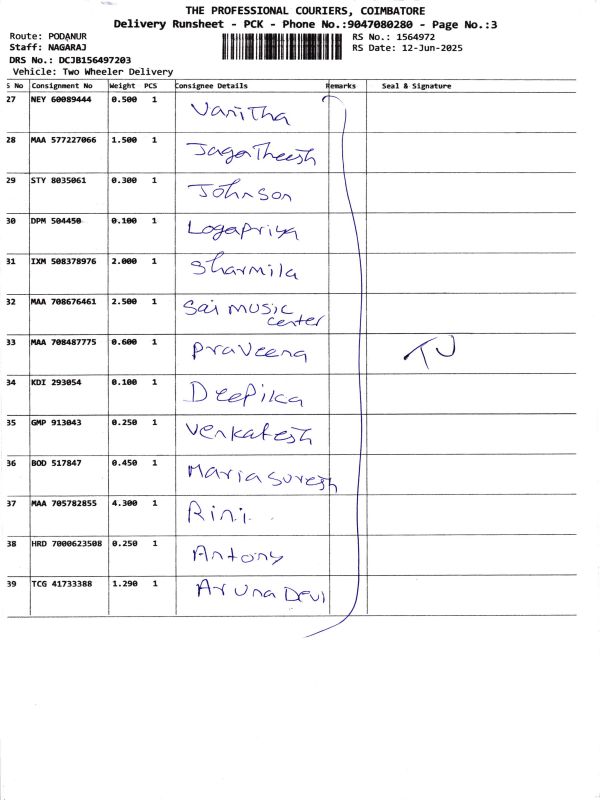 THE PROFESSIONAL COURIERS, COIMBATORE
Delivery Runsheet - PCK - Phone No.:9047080280 - Page No.:3
Route: PODANUR
Staff: NAGARAJ
DRS No.: DCJB156497203
Vehicle: Two Wheeler Delivery
RS No.: 1564972
RS Date: 12-Jun-2025
S No Consignment No Weight PCS Consignee Details Remarks Seal & Signature
27 NEY 60089444 0.500 1 Vanitha
28 MAA 577227066 1.500 1 Jagatheesh
29 STY 8035061 0.300 1 Johnson
30 DPM 504450 0.100 1 Logapriya
31 IXM 508378976 2.000 1 Sharmila
32 MAA 708676461 2.500 1 Sai music
center
33 MAA 708487775 0.600 1 Praveena
34 KDI 293054 0.100 1 Deepika
35 GMP 913043 0.250 1 Venkatesh
36 BOD 517847 0.450 1 Maria Suresh
37 MAA 705782855 4.300 1 Rini
38 HRD 7000623508 0.250 1 Antony
39 TCG 41733388 1.290 1 Aruna Devi